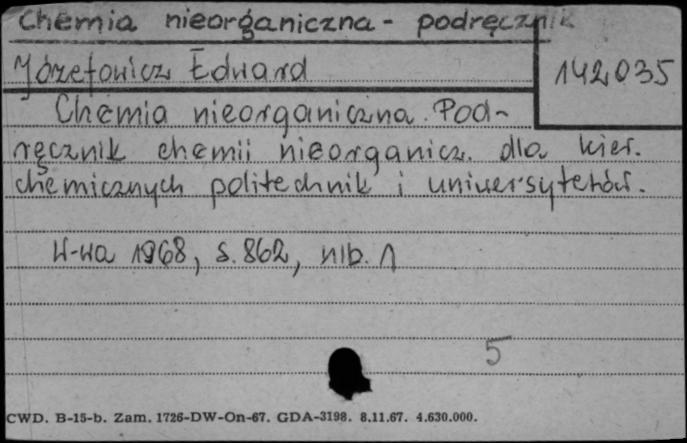 Chemia nieorganiczna - podręcznik
Józefowicz Edward
142035
Chemia nieorganiczna. Pod-
ręcznik chemii nieorganicz. dla kier.
chemicznych politechnik i uniwersytetów.
W-wa 1968, s. 862, nlb. 1
5
CWD. B-15-b. Zam. 1726-DW-On-67. GDA-3198. 8.11.67. 4.630.000.